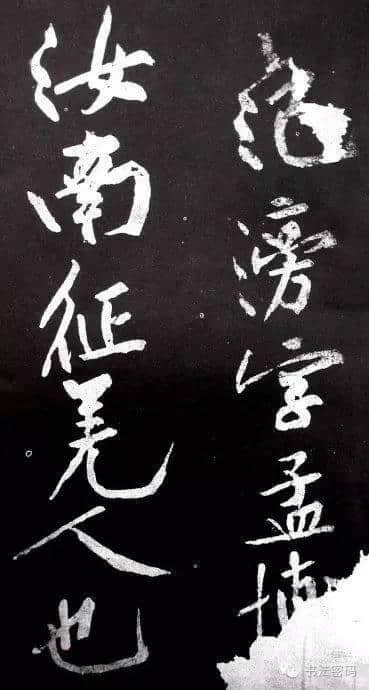 范滂字孟博
汝南征羌人也
书法密码